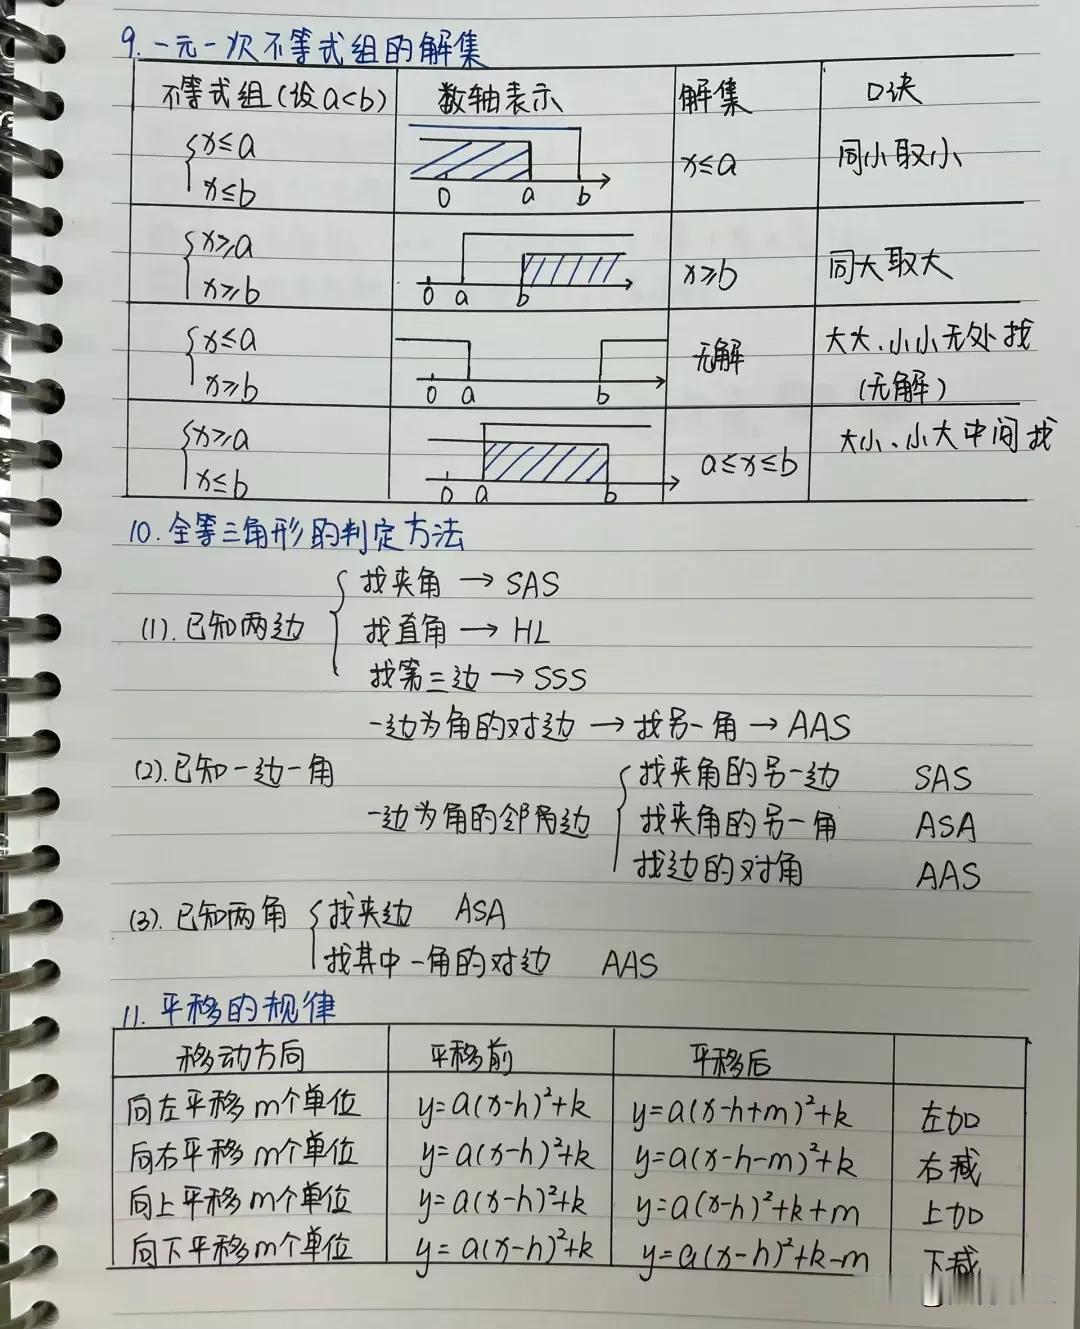 9. 一元一次不等式组的解集
不等式组(设a<b) 数轴表示 解集 口诀
x≤a
x≤b 0 a b x≤a 同小取小
x≥a
x≥b 0 a b x≥b 同大取大
x≤a
x≥b 0 a b 无解 大大、小小无处找
(无解)
x≥a
x≤b 0 a b a≤x≤b 大小、小大中间找
10. 全等三角形的判定方法
(1). 已知两边
找夹角 → SAS
找直角 → HL
找第三边 → SSS
(2). 已知一边一角
一边为角的对边 → 找另一角 → AAS
一边为角的邻角边
找夹角的另一边 SAS
找夹角的另一角 ASA
找边的对角 AAS
(3). 已知两角
找夹边 ASA
找其中一角的对边 AAS
11. 平移的规律
移动方向 平移前 平移后
向左平移m个单位 y=a(x-h)²+k y=a(x-h+m)²+k 左加
向右平移m个单位 y=a(x-h)²+k y=a(x-h-m)²+k 右减
向上平移m个单位 y=a(x-h)²+k y=a(x-h)²+k+m 上加
向下平移m个单位 y=a(x-h)²+k y=a(x-h)²+k-m 下减